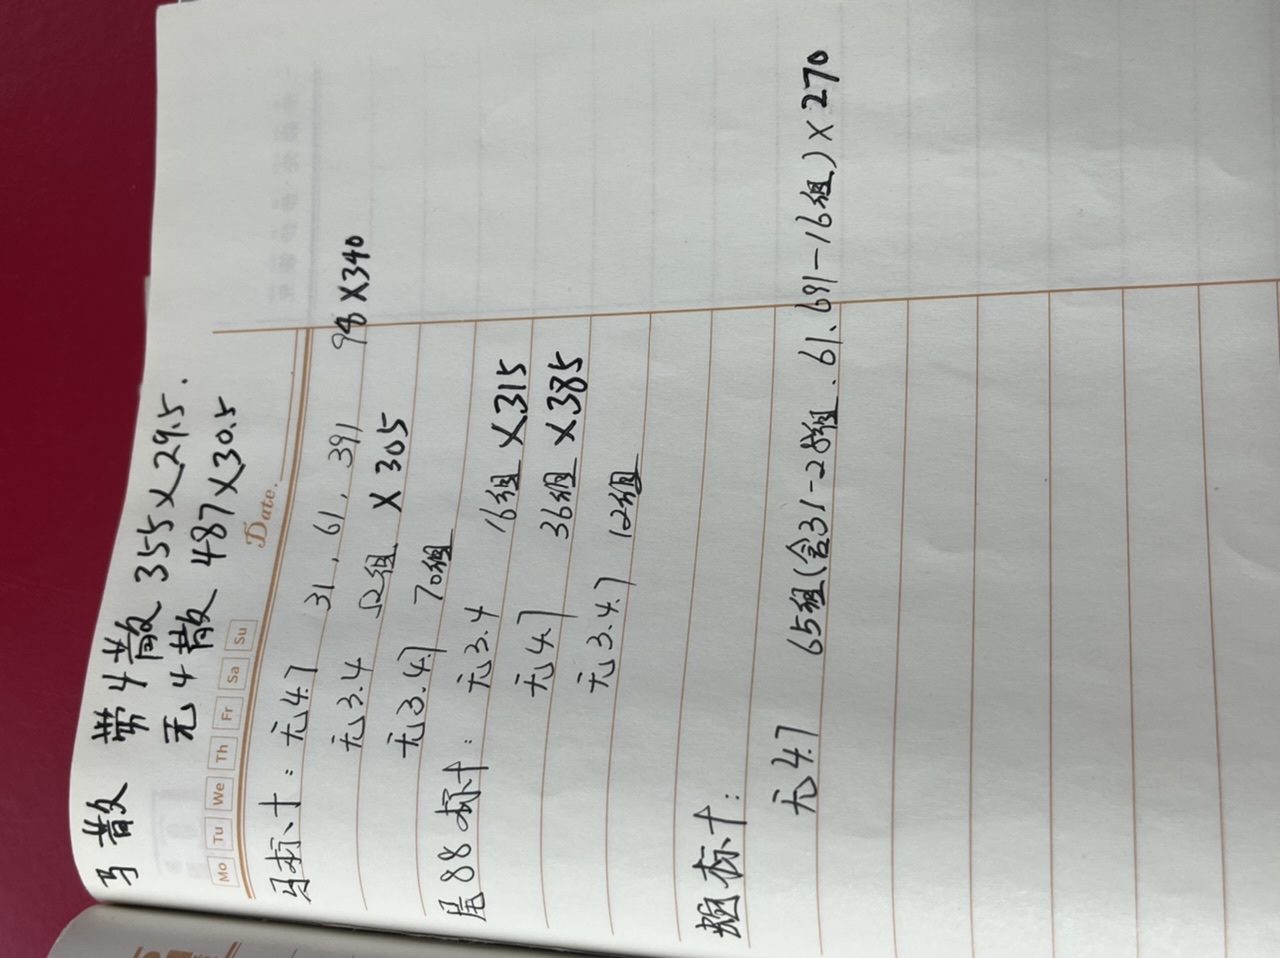 马散 带4散 355×29.5.
无4散 487×30.5
Mo Tu We Th Fr Sa Su Date.
马标十: 无4.7 31, 61, 391 98×340
无3.4 52组 ×305
无3.4.7 70组
尾88标十: 无3.4 16组 ×315
无4.7 36组 ×385
无3.4.7 12组
标十:
无4.7 65组(含31-28组. 61、691-16组)×270